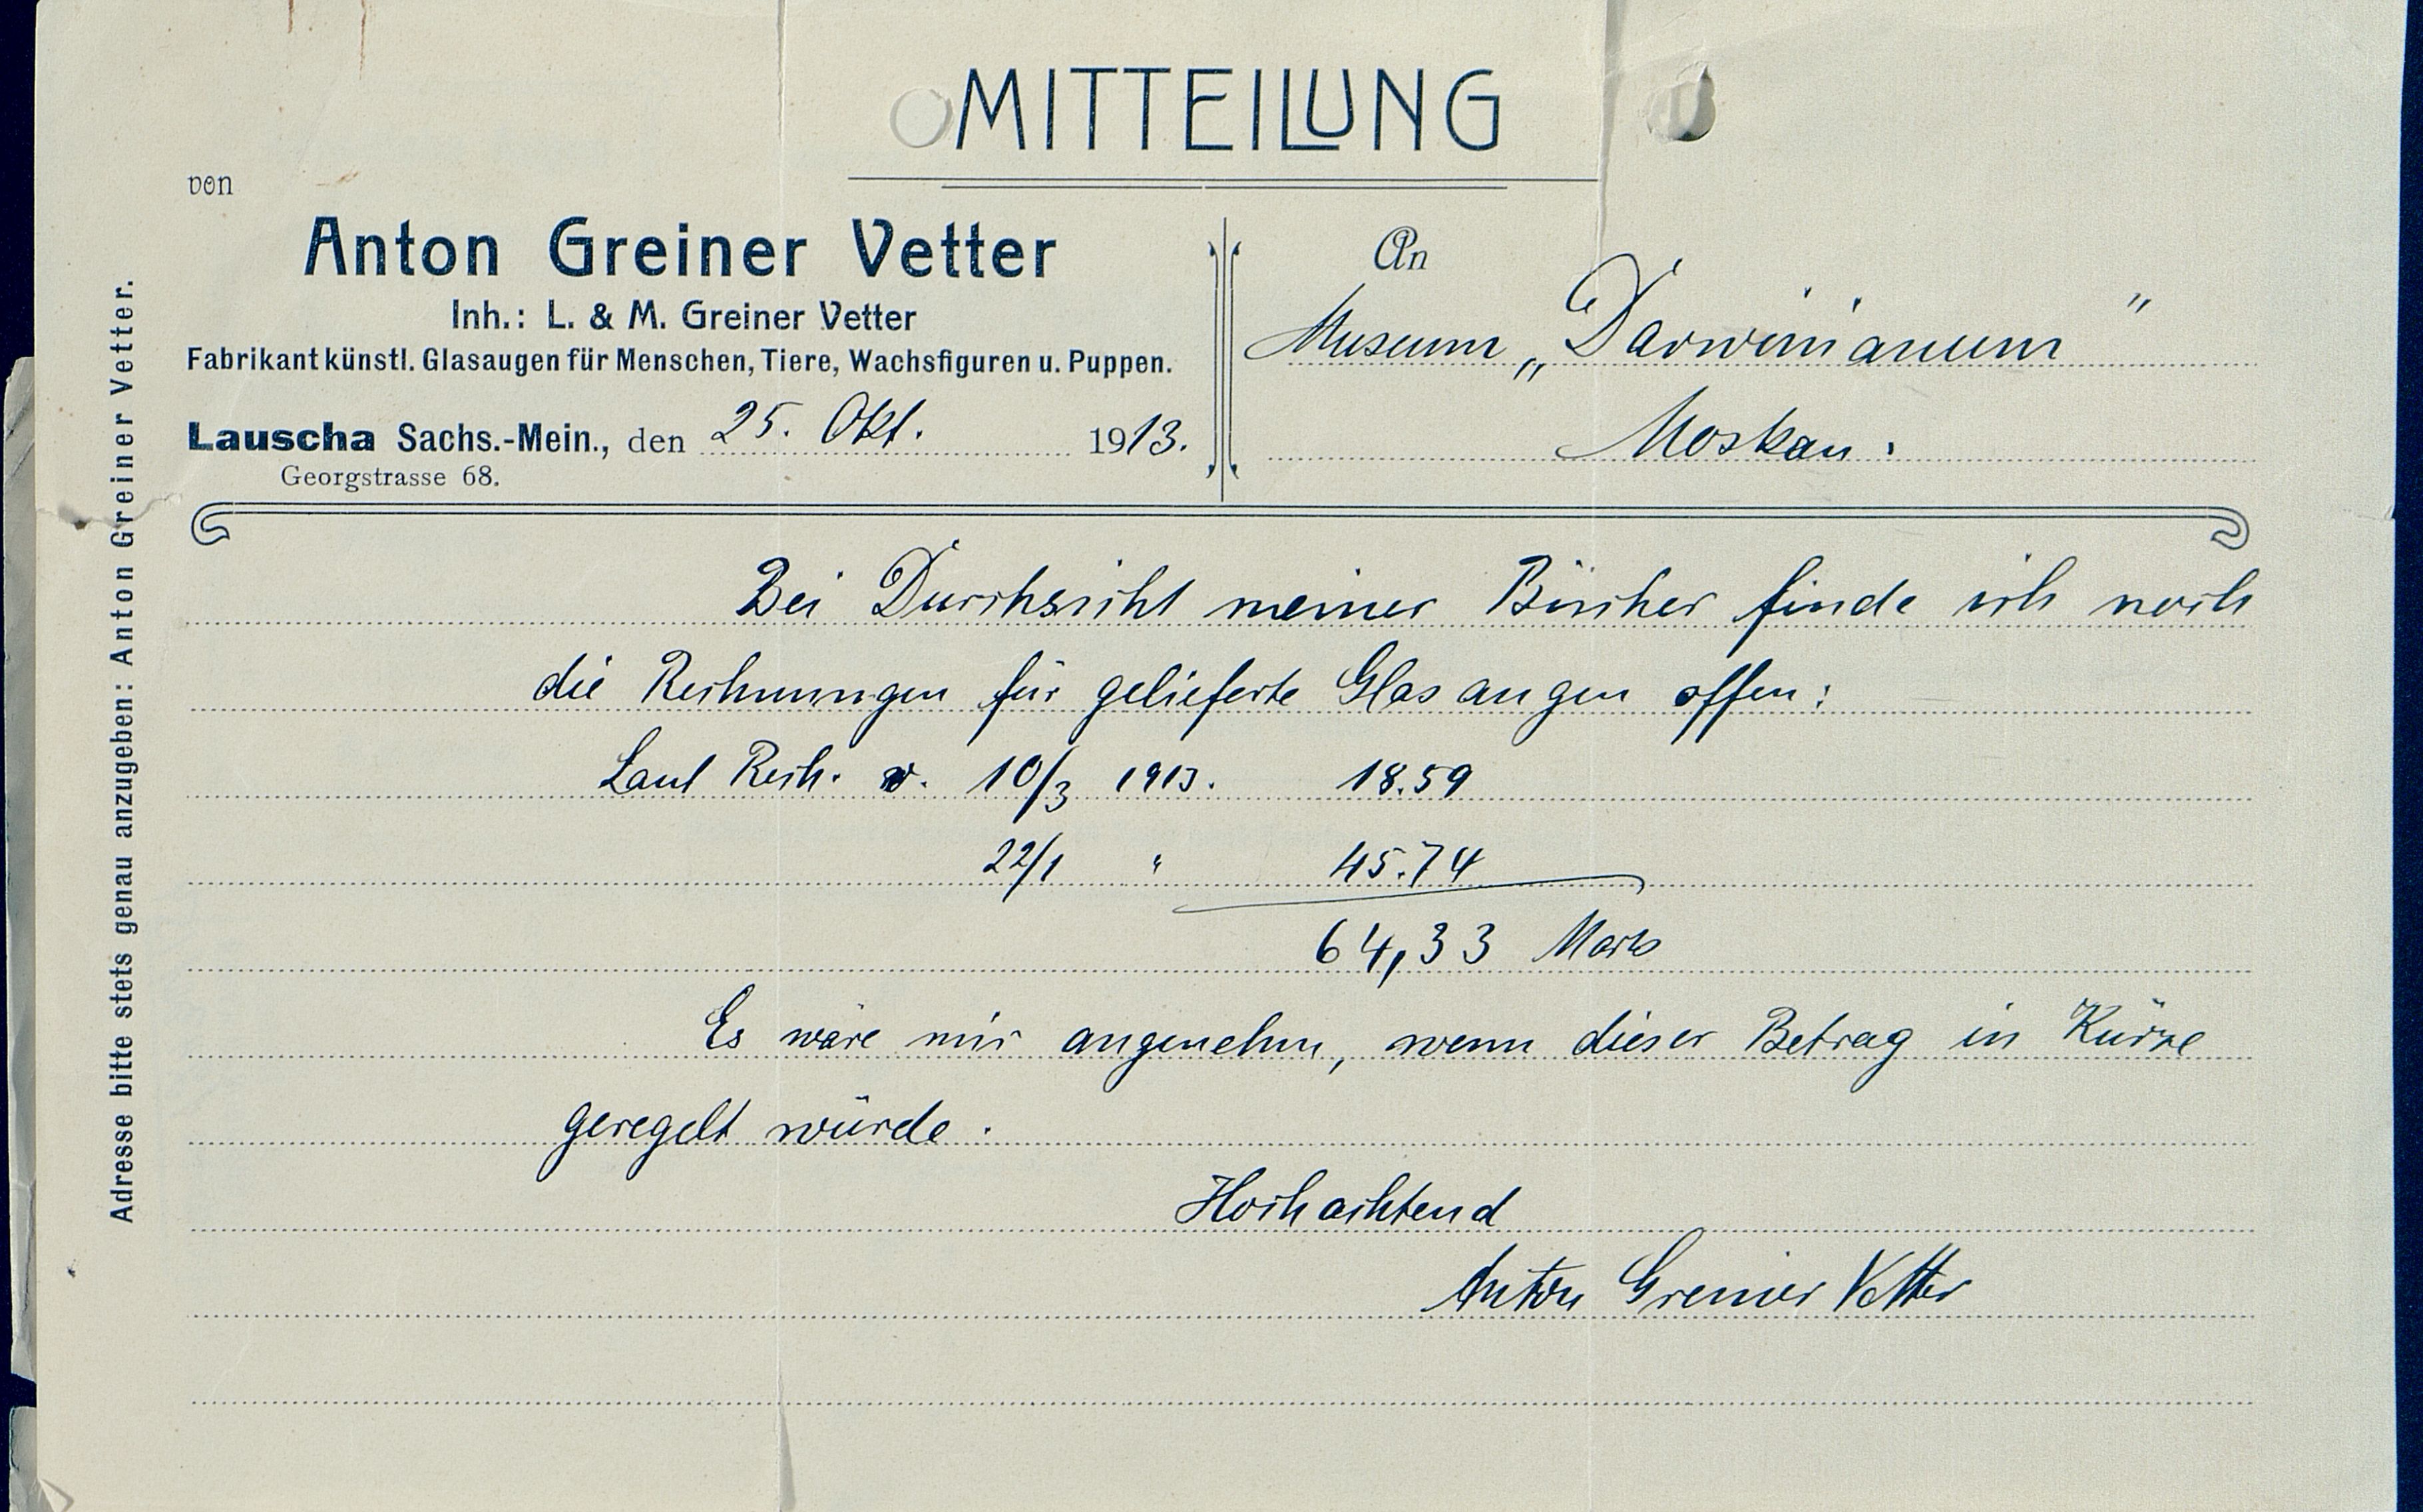 MITTEILUNG
von
Anton Greiner Vetter
Inh.: L. & M. Greiner Vetter
Fabrikant künstl. Glasaugen für Menschen, Tiere, Wachsfiguren u. Puppen.
Lauscha Sachs.-Mein., den 25. Okt. 1913.
Georgstrasse 68.
An
Museum „Darwinianum"
Moskau.
Adresse bitte stets genau anzugeben: Anton Greiner Vetter.
Bei Durchsicht meiner Bücher finde ich noch
die Rechnungen für gelieferte Glasaugen offen:
Laut Rech. v. 10/3 1913. 18.59
22/1 " 45.74
64,33 Mark
Es wäre mir angenehm, wenn dieser Betrag in Kürze
geregelt würde.
Hochachtend
Anton Greiner Vetter